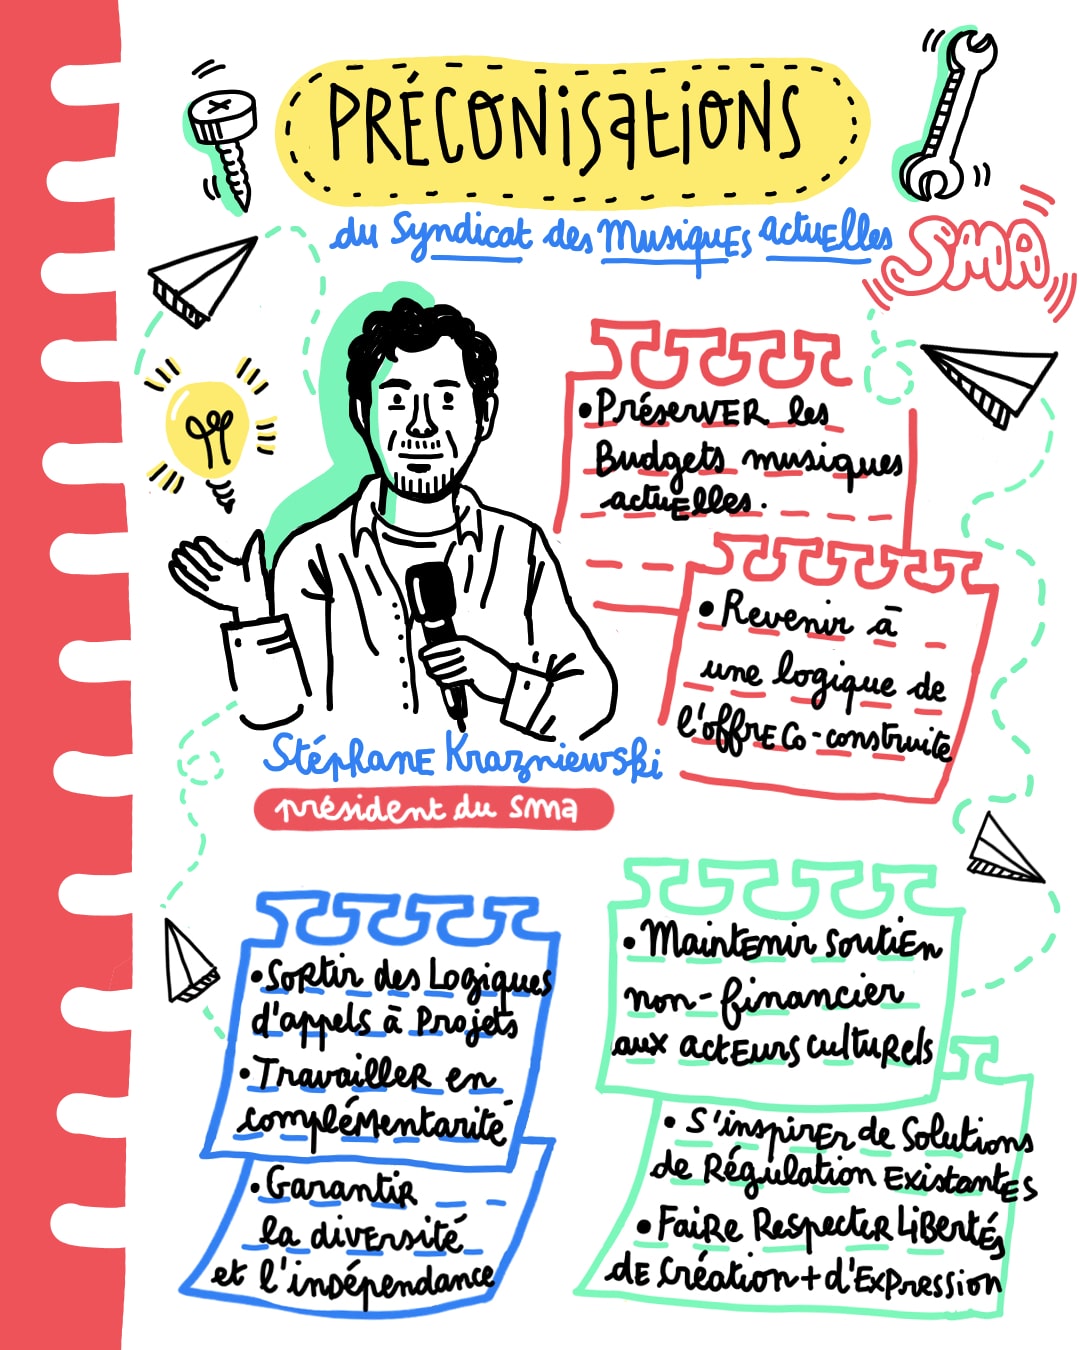 PRÉCONISATIONS
du Syndicat des Musiques actuelles
SMA
• Préserver les
Budgets musiques
actuelles.
• Revenir à
une logique de
l'offre co-construite
Stéphane Krazniewski
président du sma
• Sortir des Logiques
d'appels à Projets
• Travailler en
complémentarité
• Garantir
la diversité
et l'indépendance
• Maintenir soutien
non-financier
aux acteurs culturels
• S'inspirer de Solutions
de Régulation Existantes
• Faire Respecter Libertés
de Création + d'Expression